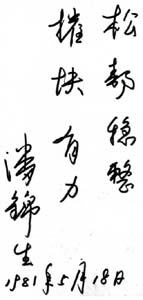 松静稳整
摧块有力
潘锦生
1981年5月18日